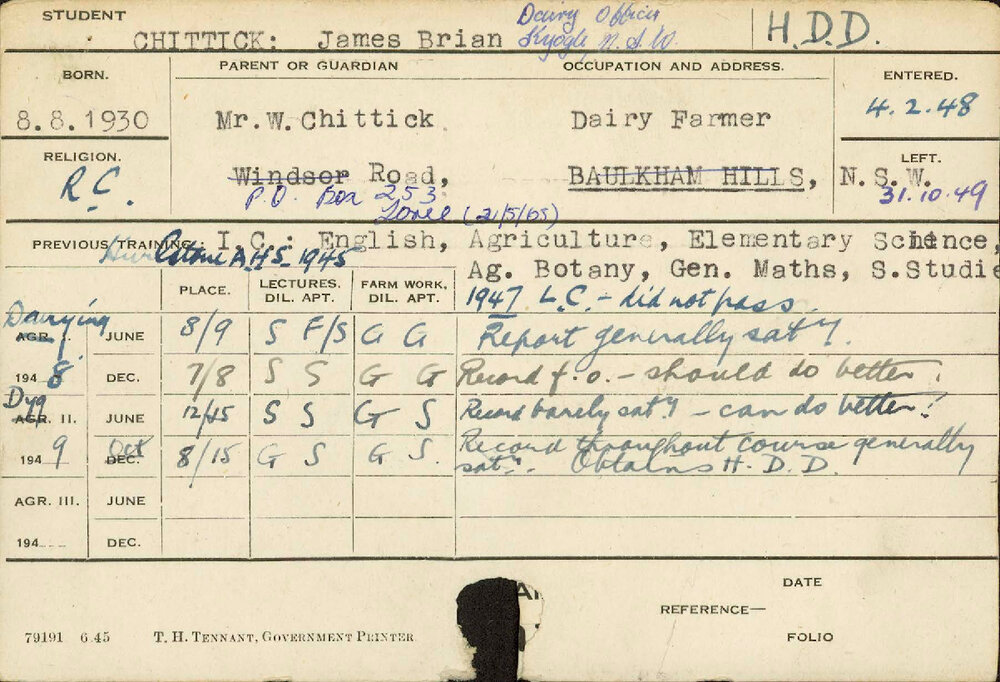 STUDENT
CHITTICK: James Brian
Dairy Officer
Kyogle, N.S.W.
H.D.D.
BORN.
PARENT OR GUARDIAN
OCCUPATION AND ADDRESS.
ENTERED.
8.8.1930
Mr.W.Chittick
Dairy Farmer
4.2.48
RELIGION.
R.C.
Windsor Road,
BAULKHAM HILLS, N.S.W.
LEFT.
31.10.49
P.O. Box 253
(21/5/65)
PREVIOUS TRAINING: I.C.: English, Agriculture, Elementary Science,
Hurlstone A.H.S. 1945
Ag. Botany, Gen. Maths, S.Studie
PLACE.
LECTURES.
DIL. APT.
FARM WORK.
DIL. APT.
1947 L.C. - did not pass
Dairying
AGR. I. JUNE 8/9 S F/S G G Report generally saty.
1948 DEC. 7/8 S S G G Record f.o. - should do better.
Dyg
AGR. II. JUNE 12/15 S S G S Record barely saty - can do better!
1949 Oct DEC. 8/15 G S G S. Record throughout course generally
saty. Obtains H.D.D.
AGR. III. JUNE
194 DEC.
DATE
REFERENCE—
FOLIO
79191 6.45 T. H. TENNANT, GOVERNMENT PRINTER